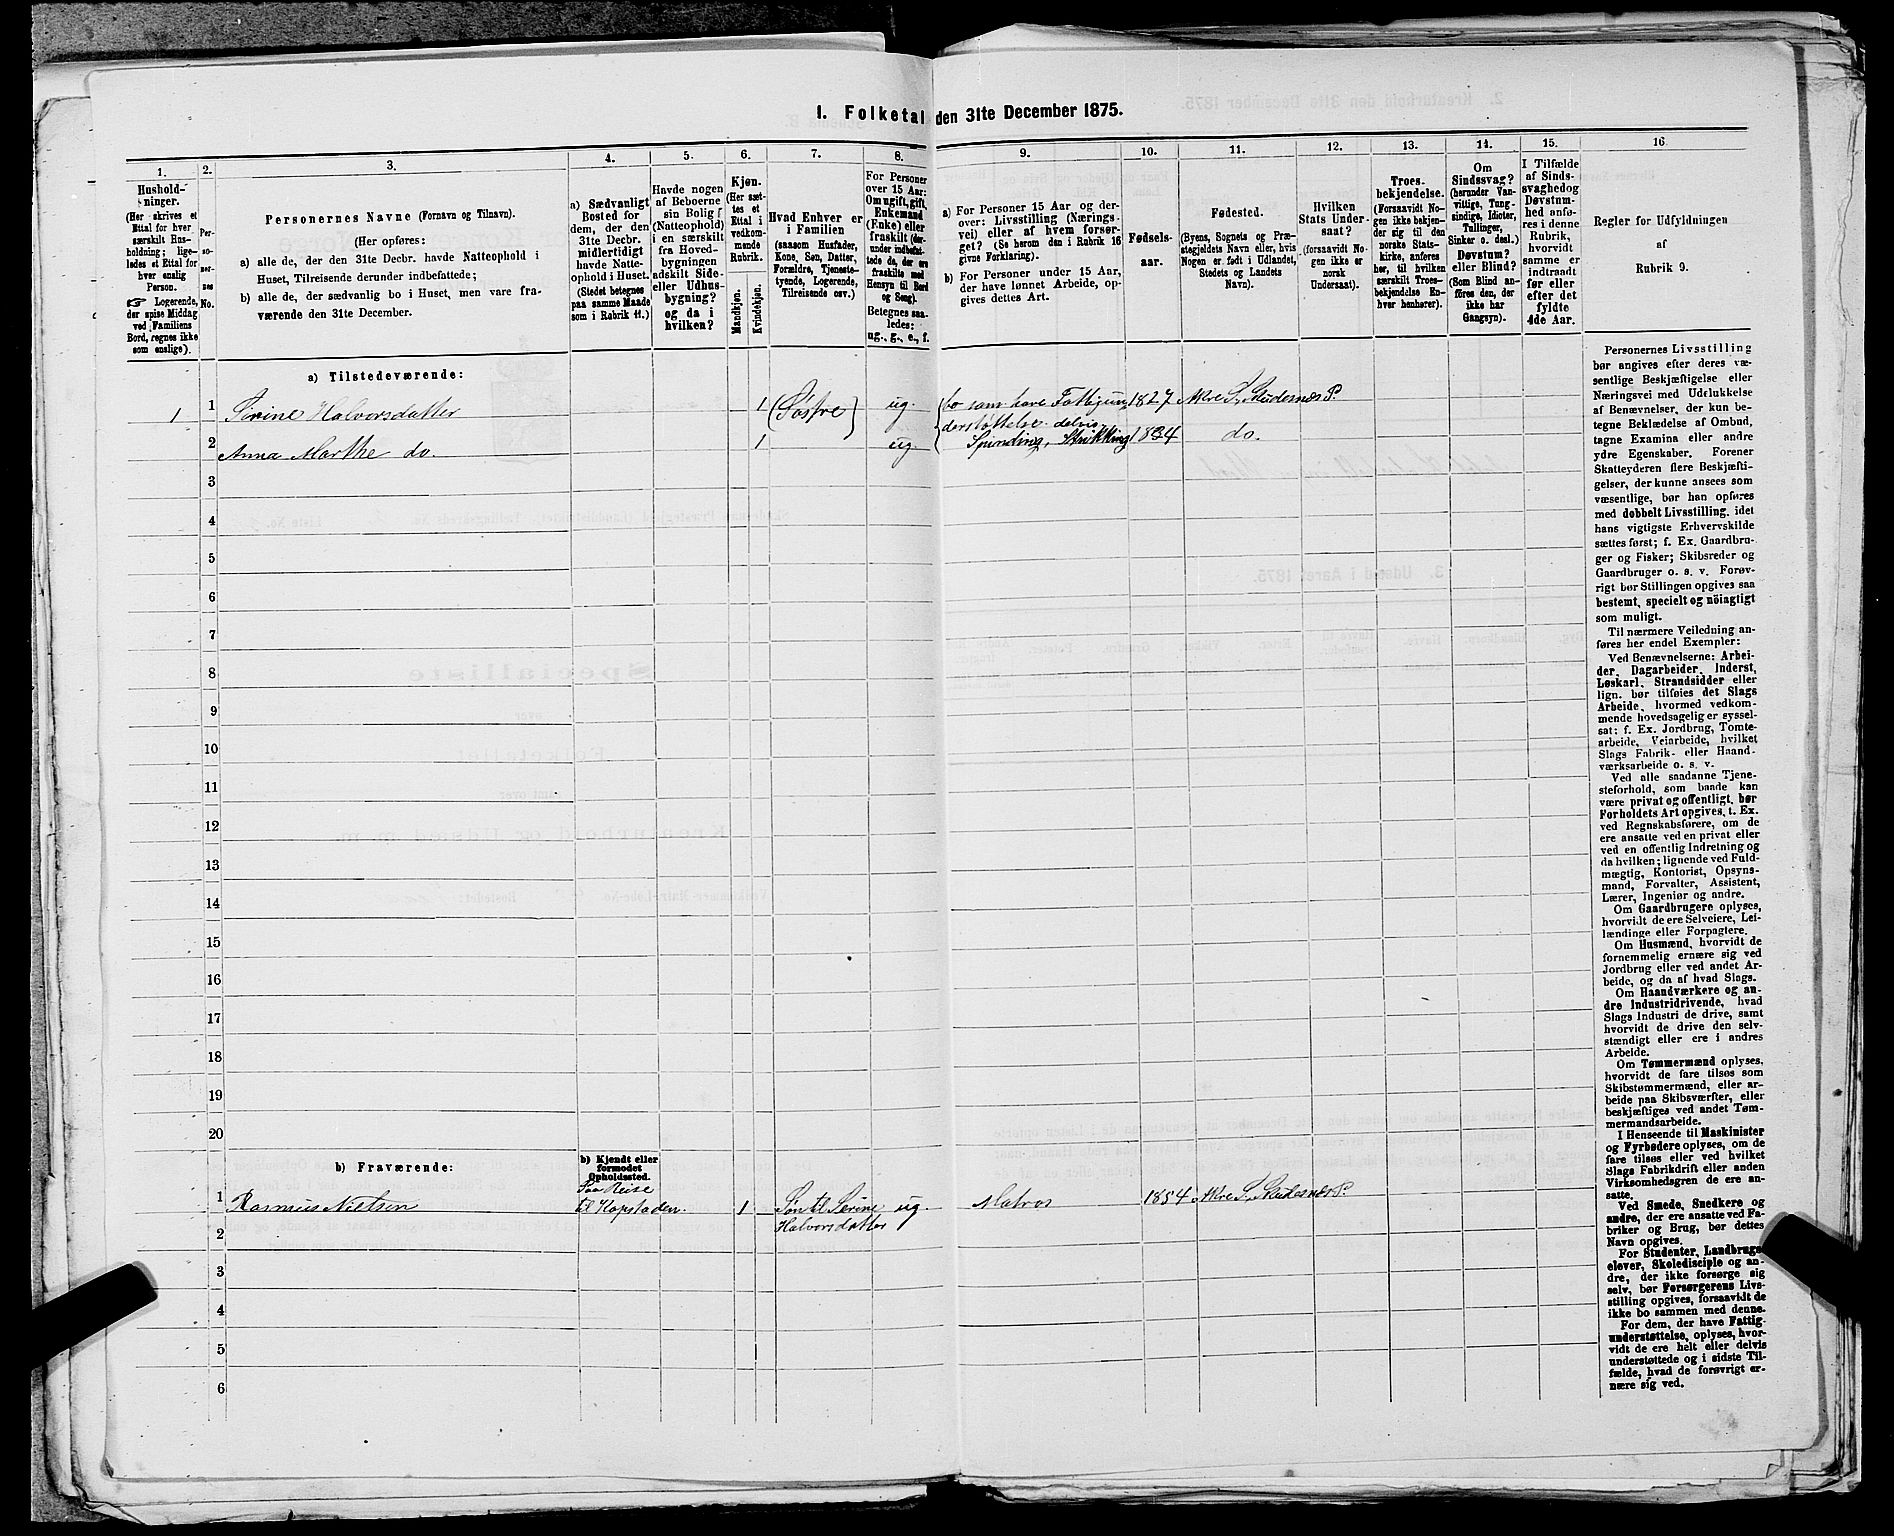 1. Folketal den 31te December 1875.
1.
2.
3.
4.
5.
6.
7.
8.
9.
10.
11.
12.
13.
14.
15.
16
Hushold-
ninger.
(Her skrives et
Ettal for hver
særskilt Hus-
holdning; lige-
ledes et Ettal for
hver enslig
Person.
☞ Logerende,
der spise Middag
ved Familiens
Bord, regnes ikke
som enslige).
Per-
so-
ner-
nes
No.
Personernes Navne (Fornavn og Tilnavn).
(Her opføres:
a) alle de, der den 31te Decbr. havde Natteophold i
Huset, Tilreisende derunder indbefattede;
b) alle de, der sædvanlig bo i Huset, men vare fra-
værende den 31te December.
a) Sædvanligt
Bosted for
dem, der den
31te Decbr.
midlertidigt
havde Natte-
ophold i Huset.
(Stedet betegnes
paa samme Maade
som i Rubrik 11.)
Havde nogen
af Beboerne
sin Bolig
(Natteophold)
i en særskilt
fra Hoved-
bygningen
adskilt Side-
eller Udhus-
bygning?
og da i
hvilken?
Kjøn.
(Her sæt-
tes et
Ettal i
vedkom-
mende
Rubrik.
Mandkjøn.
Kvindekjøn.
Hvad Enhver er
i Familien
(saasom Husfader,
Kone, Søn, Datter,
Forældre, Tjeneste-
tyende, Logerende,
Tilreisende osv.)
For Personer
over 15 Aar:
Om ugift, gift,
Enkemand
(Enke) eller
fraskilt (der-
under indbefat-
tede de, der ere
fraskilte med
Hensyn til Bord
og Seng).
Betegnes saa-
ledes:
ug., g., e., f.
a) For Personer 15 Aar og der-
over: Livsstilling (Nærings-
vei) eller af hvem forsør-
get? (Se herom den i Rubrik 16
givne Forklaring).
b) For Personer under 15 Aar,
der have lønnet Arbeide, op-
gives dettes Art.
Fødsels-
aar.
Fødested.
(Byens, Sognets og Præ-
stegjeldets Navn eller, hvis
Nogen er født i Udlandet,
Stedets og Landets
Navn).
Hvilken
Stats Under-
saat?
(forsaavidt No-
gen ikke er
norsk
Undersaat).
Troes-
bekjendelse.
(Forsaavidt No-
gen ikke bekjen-
der sig til den
norske Stats-
kirke, anføres
her, til hvilken
særskilt Troes-
bekjendelse En-
hver henhører).
Om
Sindssvag?
(herunder Van-
vittige, Tung-
sindige, Idioter,
Tullinger,
Sinker o. desl.)
Døvstum?
eller Blind?
(Som Blind an-
føres den, der
ikke har
Gangsyn).
I Tilfælde
af Sinds-
svaghed og
Døvstum-
hed anfø-
res i denne
Rubrik,
hvorvidt
samme er
indtraadt
før eller
efter det
fyldte
4de Aar.
Regler for Udfyldningen
af
Rubrik 9.
a) Tilstedeværende:
1 1 Serine Halvorsdatter 1 (Søstre) ug. bo sam. have Fattigun- 1827 Akre S. Skudesnæs P.
derstøttelse delvis
2 Anna Marthe do. 1 ug Spinding, Strikking 1834 do.
3
4
5
6
7
8
9
10
11
12
13
14
15
16
17
18
19
20
b) Fraværende:
b) Kjendt eller
formodet
Opholdssted.
1 Rasmus Nielsen Paa Reise til Kapstaden. 1 Søn til Serine Halvorsdatter ug. Matros 1854 Akre S. Skudesnæs P.
2
3
4
5
6
Personernes Livsstilling
bør angives efter deres væ-
sentlige Beskjæftigelse eller
Næringsvei med Udelukkelse
af Benævnelser, der kun be-
tegne Beklædelse af Ombud,
tagne Examina eller andre
ydre Egenskaber. Forener
Skatteyderen flere Beskjæfti-
gelser, der kunne ansees som
væsentlige, bør han opføres
med dobbelt Livsstilling, idet
hans vigtigste Erhvervskilde
sættes først; f. Ex. Gaardbru-
ger og Fisker; Skibsreder og
Gaardbruger o. s. v. Forøv-
rigt bør Stillingen opgives saa
bestemt, specielt og nöiagtigt
som muligt.
Til nærmere Veiledning an-
føres her endel Exempler:
Ved Benævnelserne: Arbei-
der, Dagarbeider, Inderst,
Løskarl, Strandsidder eller
lign. bør tilføies det Slags
Arbeide, hvormed vedkom-
mende hovedsagelig er syssel-
sat: f. Ex. Jordbrug, Tomte-
arbeide, Veiarbeide, hvilket
Slags Fabrik- eller Haand-
værksarbeide o. s. v.
Ved alle saadanne Tjene-
steforhold, som baade kan
være privat og offentligt, bør
Forholdets Art opgives, t. Ex.
ved Regnskabsførere, om de
ere ansatte ved en privat eller
ved en offentlig Indretning og
da hvilken; lignende ved Fuld-
mægtig, Kontorist, Opsyns-
mand, Forvalter, Assistent,
Lærer, Ingeniør og andre.
Om Gaardbrugere oplyses,
hvorvidt de ere Selveiere, Lei-
lændinge eller Forpagtere.
Om Husmænd, hvorvidt de
fornemmelig ernære sig ved
Jordbrug eller ved andet Ar-
beide, og da af hvad Slags.
Om Haandværkere og an-
dre Industridrivende, hvad
Slags Industri de drive, samt
hvorvidt de drive den selv-
stændigt eller ere i andres
Arbeide.
Om Tømmermænd oplyses,
hvorvidt de fare tilsøs som
Skibstømmermænd, eller ar-
beide paa Skibsværfter, eller
beskjæftiges ved andet Tøm-
mermandsarbeide.
I Henseende til Maskinister
og Fyrbødere oplyses, om de
fare tilsøs eller ved hvilket
Slags Fabrikdrift eller anden
Virksomhedsgren de ere an-
satte.
Ved Smede, Snedkere og
andre, der ere ansatte ved Fa-
briker og Brug, bør dettes
Navn opgives.
For Studenter, Landbrugs-
elever, Skoledisciple og an-
dre, der ikke forsørge sig
selv, bør Forsørgerens Livs-
stilling opgives, forsaavidt de
ikke bo sammen med denne.
For dem, der have Fattig-
understøttelse, oplyses, hvor-
vidt de ere helt eller delvis
understøttede og i sidste Til-
fælde, hvad de forøvrigt er-
nære sig ved.